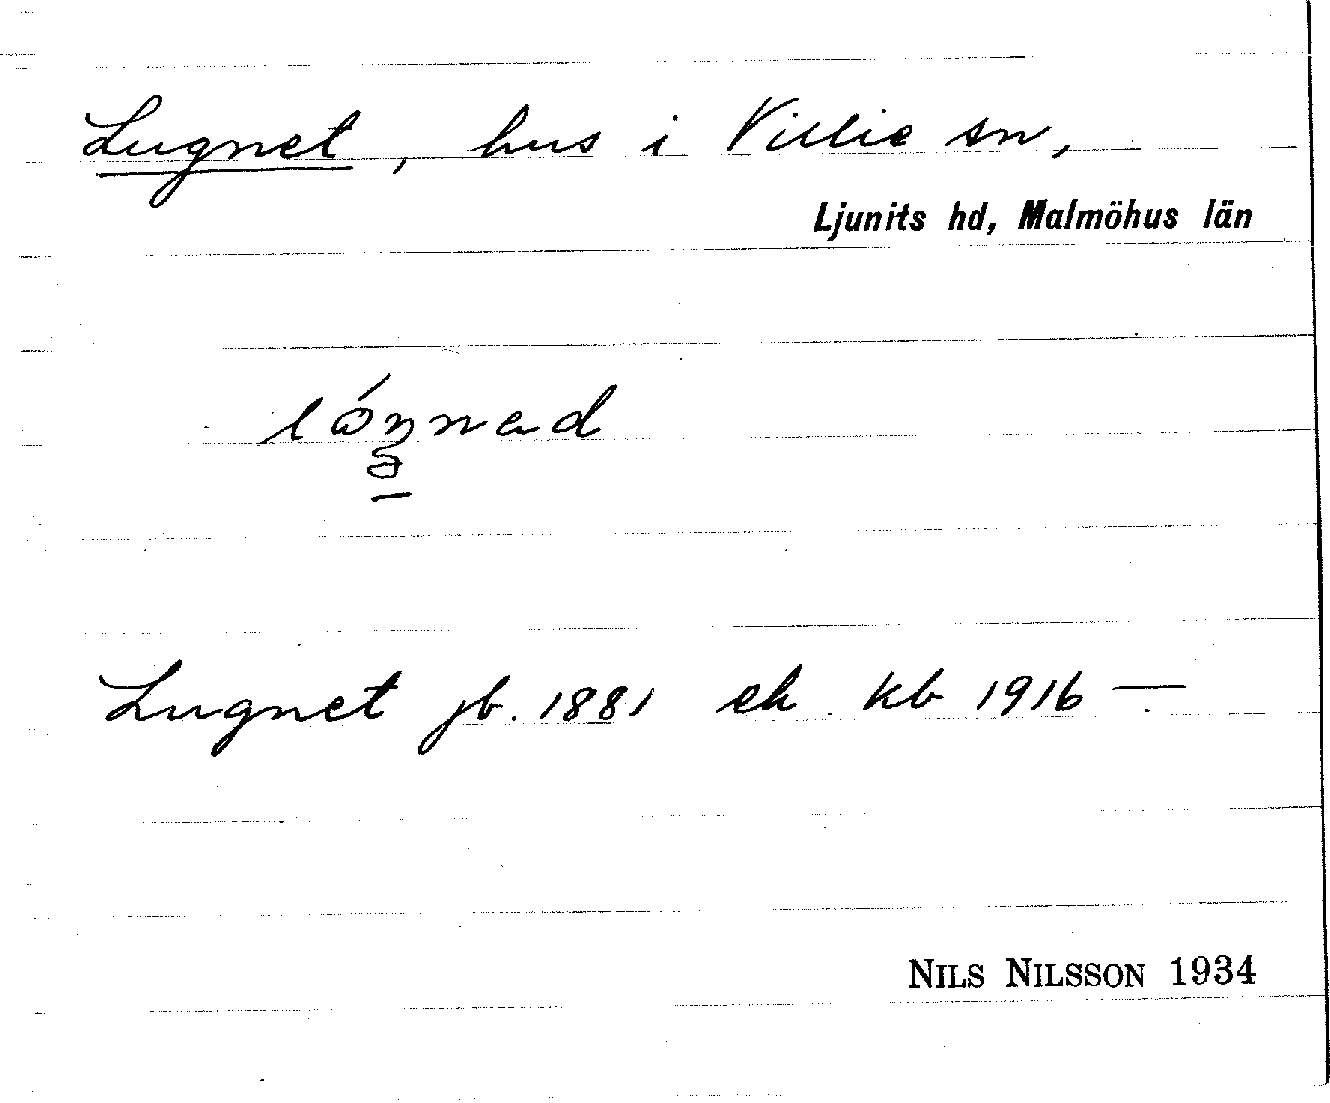 Lugnet, hus i Villie sn,
Ljunits hd, Malmöhus län
Lugnet jb. 1881 ek kb 1916 —
NILS NILSSON 1934